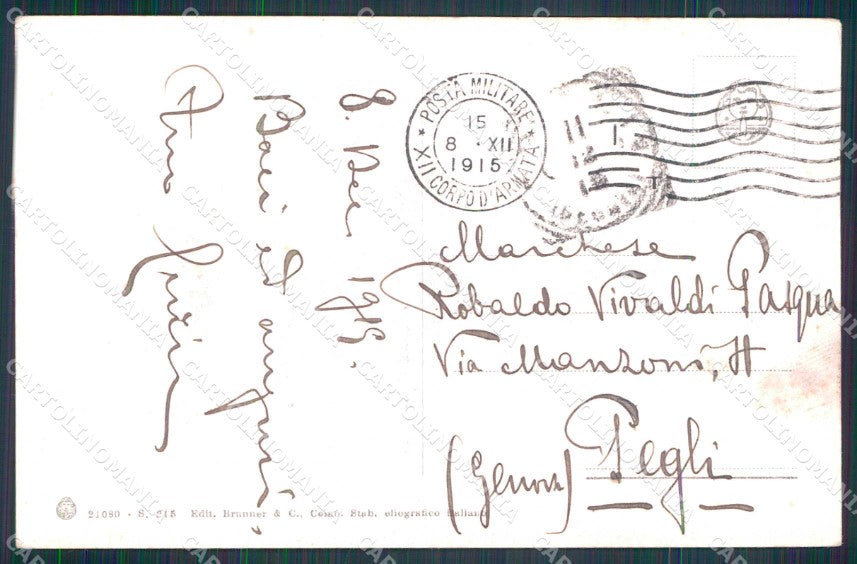 8. Dec 1915.
Baci ed auguri.
POSTA MILITARE
15
8 · XII
1915
XII CORPO D'ARMATA
Marchese
Robaldo Vivaldi Pasqua
Via Manzoni, H
Pegli
(Genova)
21080 - S. 215 Edit. Brunner & C., Como. Stab. eliografico italiano
CARTOLINOMANIA